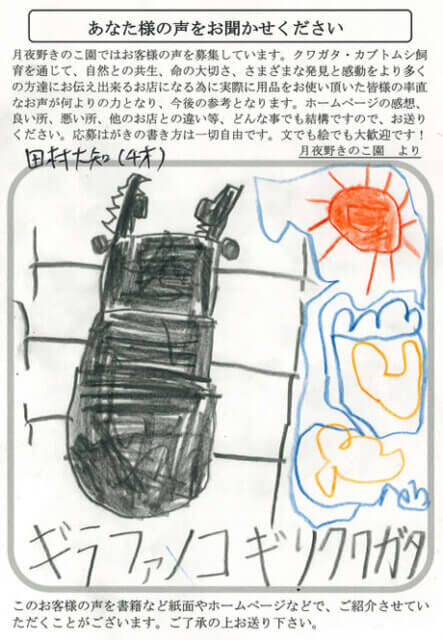 あなた様の声をお聞かせください
月夜野きのこ園ではお客様の声を募集しています。クワガタ・カブトムシ飼
育を通じて、自然との共生、命の大切さ、さまざまな発見と感動をより多く
の方達にお伝え出来るお店になる為に実際に用品をお使い頂いた皆様の率直
なお声が何よりの力となり、今後の参考となります。ホームページの感想、
良い所、悪い所、他のお店との違い等、どんな事でも結構ですので、お送り
ください。応募はがきの書き方は一切自由です。文でも絵でも大歓迎です！
月夜野きのこ園　より
田村大知(4才)
ギラファノコギリクワガタ
このお客様の声を書籍など紙面やホームページなどで、ご紹介させてい
ただくことがございます。ご了承の上お送り下さい。